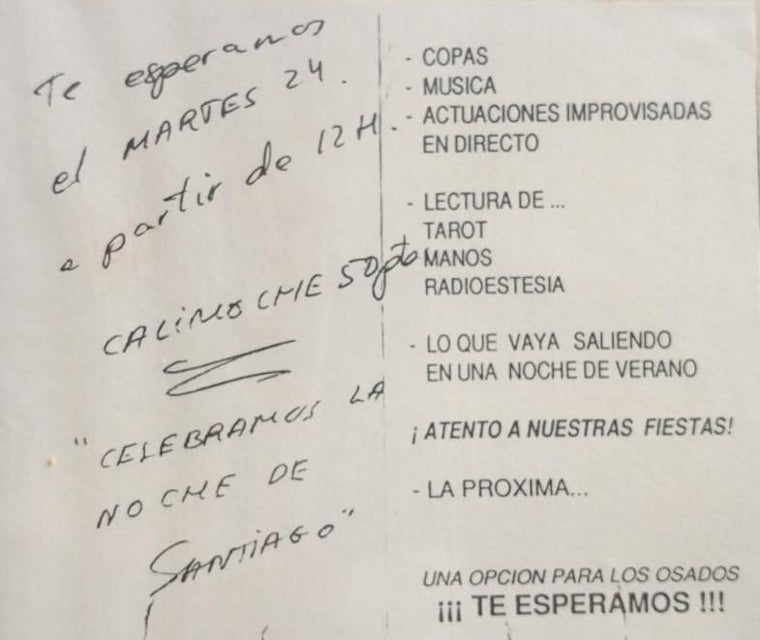 Te esperamos
el MARTES 24.
a partir de 12H.
CALIMOCHE 50pts
"CELEBRAMOS LA
NOCHE DE
SANTIAGO"
- COPAS
- MUSICA
- ACTUACIONES IMPROVISADAS
EN DIRECTO
- LECTURA DE ...
TAROT
MANOS
RADIOESTESIA
- LO QUE VAYA SALIENDO
EN UNA NOCHE DE VERANO
¡ATENTO A NUESTRAS FIESTAS!
- LA PROXIMA...
UNA OPCION PARA LOS OSADOS
¡¡¡ TE ESPERAMOS !!!